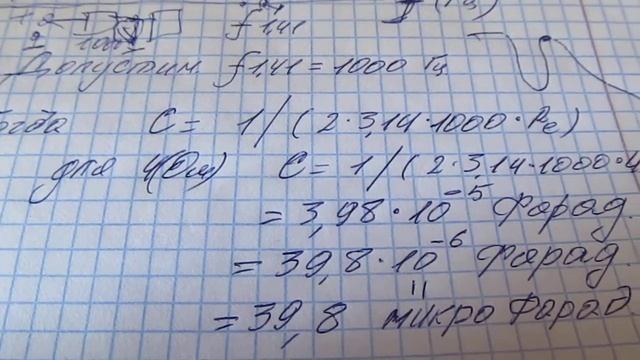 f 1,41
Допустим f 1,41 = 1000 Гц
C = 1/(2·3,14·1000·Re)
для 4(Ом) C = 1/(2·3,14·1000·4
= 3,98·10⁻⁵ Фарад.
= 39,8·10⁻⁶ Фарад.
= 39,8 микро Фарад.